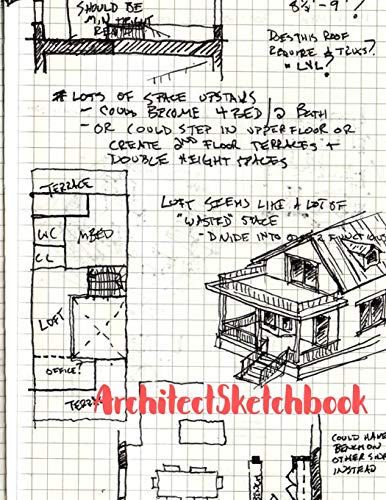 SHOULD BE
MIN HEIGHT
8½'-9'?
DOES THIS ROOF
REQUIRE A TRUSS?
"LVL?
* LOTS OF SPACE UPSTAIRS
- COULD BECOME 4 BED/2 BATH
- OR COULD STEP IN UPPER FLOOR OR
CREATE 2ND FLOOR TERRACES +
DOUBLE HEIGHT SPACES
TERRACE
WC
MBED
CL
LOFT
OFFICE?
TERRA
LOFT SEEMS LIKE A LOT OF
"WASTED" SPACE
- DIVIDE INTO
ArchitectSketchbook
COULD HAVE
BENCH ON
OTHER SIDE
INSTEAD